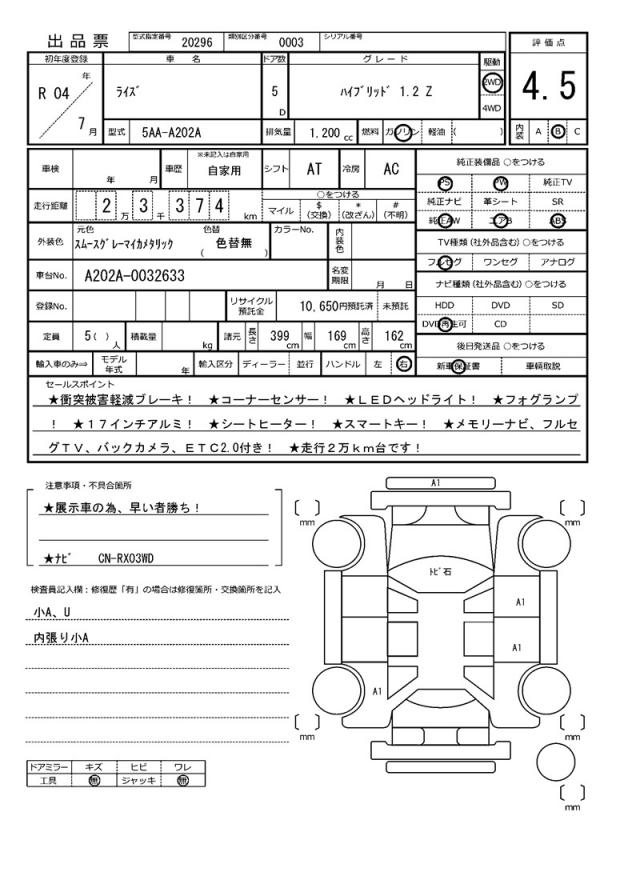 出品票 型式指定番号 20296 類別区分番号 0003 シリアル番号
評価点
4.5
内装 A B C
初年度登録 車名 ドア数 グレード 駆動
R 04 年 7 月 ライズ 5 D ハイブリッド 1.2 Z 2WD 4WD
型式 5AA-A202A 排気量 1.200 cc 燃料 ガソリン 軽油 ( )
車検 年 月 車歴 ※未記入は自家用 自家用 シフト AT 冷房 AC
走行距離 2 万 3 千 3 7 4 km ○をつける マイル $ (交換) * (改ざん) # (不明)
外装色 元色 スムースグレーマイカメタリック 色替 ( 色替無 ) カラーNo. 内装色
車台No. A202A-0032633 名変期限 月 日
登録No. リサイクル預託金 10,650円預託済 未預託
定員 5( ) 人 積載量 kg 諸元 長さ 399 cm 幅 169 cm 高さ 162 cm
輸入車のみ⇒ モデル年式 年 輸入区分 ディーラー 並行 ハンドル 左 右
純正装備品 ○をつける
PS PW 純正TV
純正ナビ 革シート SR
純正AW エアB ABS
TV種類 (社外品含む) ○をつける
フルセグ ワンセグ アナログ
ナビ種類 (社外品含む) ○をつける
HDD DVD SD
DVD再生可 CD
後日発送品 ○をつける
新車保証書 車輌取説
セールスポイント
★衝突被害軽減ブレーキ! ★コーナーセンサー! ★LEDヘッドライト! ★フォグランプ
! ★17インチアルミ! ★シートヒーター! ★スマートキー! ★メモリーナビ、フルセ
グTV、バックカメラ、ETC2.0付き! ★走行2万km台です!
注意事項・不具合箇所
★展示車の為、早い者勝ち!
★ナビ CN-RX03WD
検査員記入欄:修復歴「有」の場合は修復箇所・交換箇所を記入
小A、U
内張り小A
ドアミラー キズ ヒビ ワレ
工具 無 ジャッキ 無
A1
mm
mm
トビ石
A1
A1
A1
mm
mm
mm